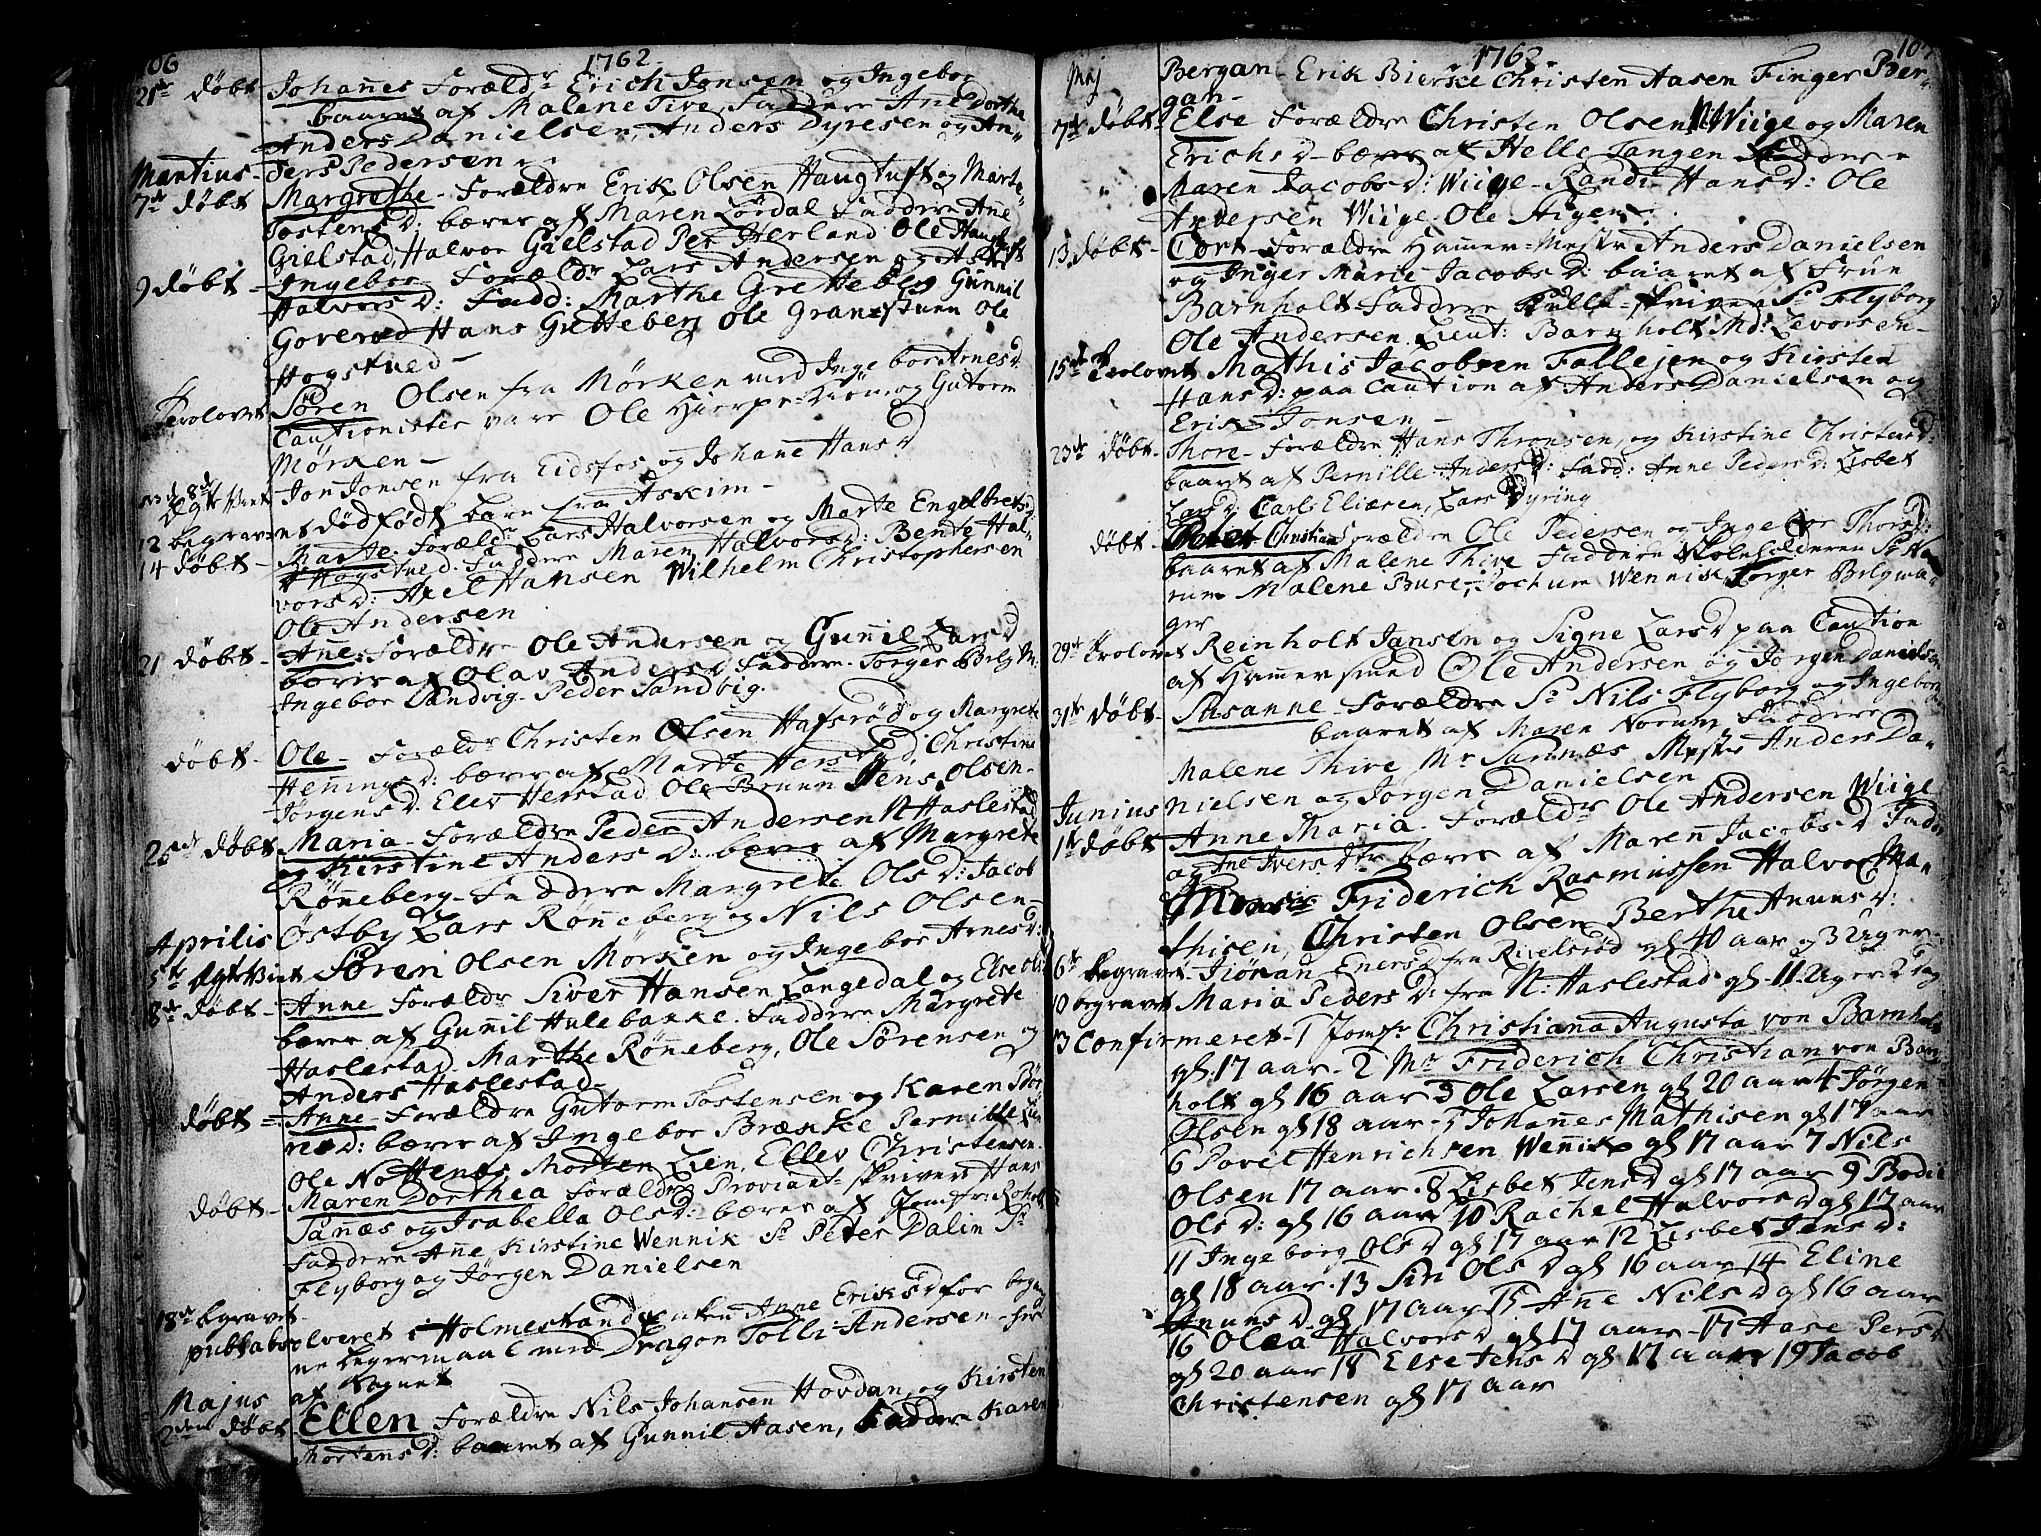 106
1762
21de Døbt Johannes Foræld.r Erich Jonsen og Ingebor
baaret af Malene Tive, Faddere Ane Dorthe
Anders Danielsen, Anders Dyresen og An-
ders Pedersen
Martius
7de Døbt Margrethe - Forældre Erik Olsen Haugtuft og Marte
Tostens D: bæres af Maren Lørdal Faddere Ane
Gielstad, Halvor Gielstad Per Herland Ole Haugtuft
9 Døbt - Ingebor Foræld.r Lars Andersen og
Halvors D: Fadd: Marthe Gretteberg Gunnil
Goverød Hans Gretteberg Ole Granestuen Ole
Hogstved -
Trolovet Søren Olsen fra Mørken med Ingebor Arnes D
Cautionister vare Ole Hiorpekiøn og Gutorm
Mørken -
Jon Jonsen fra Eidsfos og Johane Hans D
12 begravet et dødfødt barn fra Askim -
14 Døbt - Marte Foræld: Lars Halvorsen og Marte Engelbrets D
Hogstved. Faddere Maren Halvors D: Bente Hal-
vors D: Axel Hansen Wilhelm Christophersen
Ole Andersen
21 Døbt - Ane Forældre Ole Andersen og Gunnil Lars D
bæres af Olav Anders D Faddere Torger Belg M:
Ingebor Sandvig. Peder Sandvig.
Døbt - Ole - Foræld.r Christen Olsen Hafsrød og Margrete
Hennings D: bæres af Marte Herstad Christine
Jørgens D. Elev Herstad Ole Bruun Jens Olsen -
25de Døbt Maria - Forældre Peder Andersen N Haslestad
og Kirstine Anders D: bæres af Margrete
Rønneberg - Faddere Margrete Ols D: Jacob
Østby Lars Rønneberg og Nils Olsen -
Aprilis
5te Egt.Viet Søren Olsen Mørken og Ingebor Arnes D:
8de Døbt - Anne Foræld.r Siver Hansen Langedal og Else
bæres af Gunnil Hulebakke. Faddere Margrete
Haslestad Marthe Rønneberg, Ole Sørensen og
Anders Haslestad -
Døbt = Anne - Forældre Gutorm Tostensen og Karen Bør
res D: bæres af Ingebor Brække Pernille
Ole Nottenes, Morten Lien, Ellev Christensen.
Døbt - Maren Dorthea Forældre Proviant-skriver Hans
Sanæs og Isabella Ols D: bæres af Jomfr:
Faddere Ane Kirstine Wennik Sr Peter Dalin Sr
Flyborg og Jørgen Danielsen
18de begravet
publ absolveret i Holmestrand Anne Eriks D for
ne Legermaal med Dragon Tolli Andersen - her
af Sognet
Majus
2den Døbt Ellen Forældre Nils Johansen Hovdan og Kirsten
Mortens D: baaret af Gunnil Aasen, Faddere Karen
1762
107
Maj Bergan - Erik Bierke Christen Aasen Finger Ber-
gan -
7de Døbt Else Forældre Christen Olsen Wiige og Maren
Erichs D - bæres af Helle Tangen Faddere
Maren Jacobs D: Wiige - Randi Hans D: Ole
Andersen Wiige. Ole Stigen.
13 Døbt - Cort - Forældre Hammer-Mestr Anders Danielsen
og Inger Marie Jacobs D: baaret af Frue
Barnholt Faddere Fuldm Sr Flyborg
Ole Andersen. Lieut: Barnholt Md: Levorsen -
15de Trolovet Mathis Jacobsen Fallejen og Kirsten
Hans D: paa Caution af Anders Danielsen og
Erik Jonsen -
23de Døbt - Thore - Forældre Hans Thronsen, og Kirstine Christens D:
baaret af Pernille Anders D: Fadd: Anne Peders D: Lisbet
Lars D, Carl Eliæsen, Lars Dyring
Døbt - Peter Christian Forældre Ole Pedersen og Ingebor Thors D:
baaret af Malene Thive Faddere Skoleholderen
Malene Buse, Jochum Wennik, Torger Belgma-
ger
29de Trolovet Reinholt Jansen og Signe Lars D paa Caution
af Hammersmed Ole Andersen og Jørgen Danielsen
31te Døbt - Susanne Forældre Sr Nils Flyborg og Ingeborg
baaret af Maren Norum Faddere
Malene Thive Mr Sannæs Mester Anders Da-
nielsen og Jørgen Danielsen
Junius
1te Døbt Anne Maria - Foræld.r Ole Andersen Wiige
og Ane Ivers Dtr bæres af Maren Jacobs D Fadd
Friderich Rasmussen Halvor Ma-
thisen, Christen Olsen Berthe Anuns D:
6te begravet - Jiøran Eners D fra Rivelsrød gl 40 aar og 3 Uger -
10 begravet Maria Peders D: fra N: Haslestad gl - 11 Uger 2 dag
13 Confirmeret - 1 Jomfr Christiana Augusta von Barnholt
gl 17 aar - 2 Mr Friderich Christian von Barn
holt gl 16 aar 3 Ole Larsen gl 20 aar 4 Jørgen
Olsen gl 18 aar - 5 Johannes Mathisen gl 17 aar
6 Povel Henrichsen Wennik gl 17 aar 7 Nils
Olsen 17 aar - 8 Lisbet Jens D gl 17 aar 9 Bodil
Ols D: gl 16 aar 10 Rachel Halvors D gl 17 aar
11 Ingeborg Ols D gl 17 aar 12 Lisbet Jens D:
gl 18 aar - 13 Siri Ols D gl 16 aar 14 Eline
Anuns D gl 17 aar 15 Ane Nils D gl 16 aar
16 Olea Halvors D gl 17 aar - 17 Aase Pers D
gl 20 aar 18 Else Jens D gl 17 aar 19 Jacob
Christensen gl 17 aar